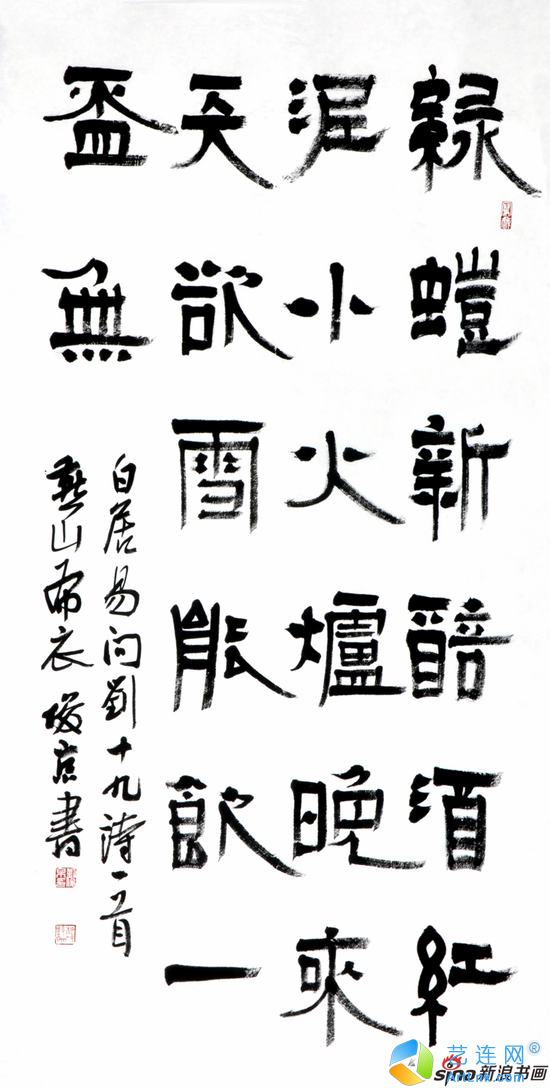 綠螘新醅湏紅
泥小火爐晚來
天欲雪能飲一
盃無
白居易问劉十九詩一首
燕山布衣書
艺连网®
sina新浪书画